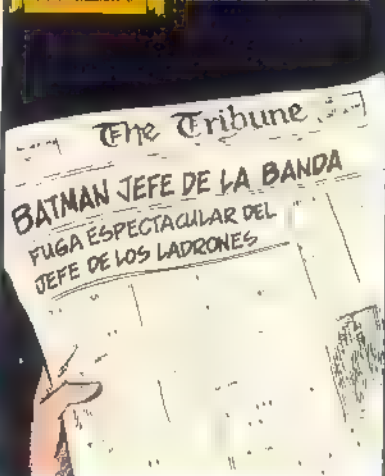 The Tribune
BATMAN JEFE DE LA BANDA
FUGA ESPECTACULAR DEL
JEFE DE LOS LADRONES